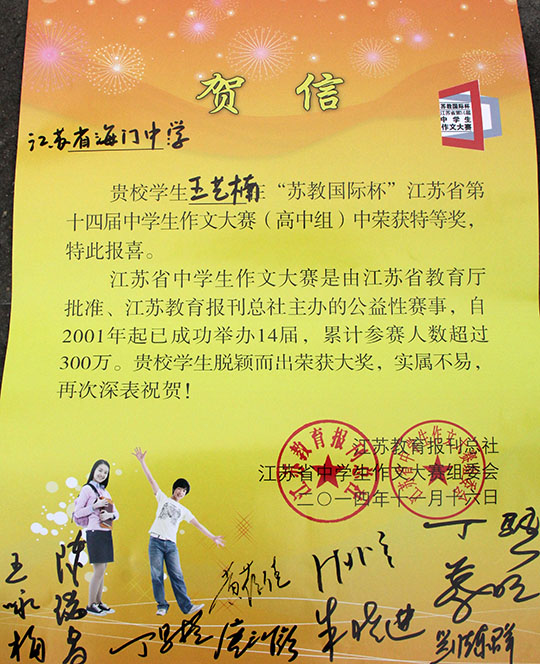 贺信
苏教国际杯
江苏省第14届
中学生
作文大赛
江苏省海门中学
贵校学生王艺楠在“苏教国际杯”江苏省第
十四届中学生作文大赛（高中组）中荣获特等奖，
特此报喜。
江苏省中学生作文大赛是由江苏省教育厅
批准、江苏教育报刊总社主办的公益性赛事，自
2001年起已成功举办14届，累计参赛人数超过
300万。贵校学生脱颖而出荣获大奖，实属不易，
再次深表祝贺！
江苏教育报刊总社
江苏省中学生作文大赛组委会
二〇一四年十一月十六日
王咏梅
朱晓进